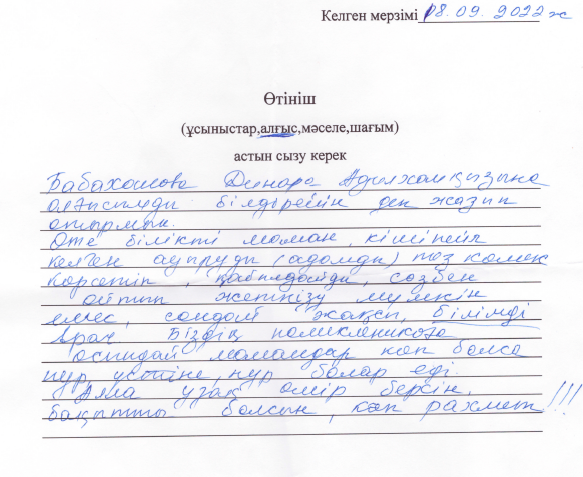 Келген мерзімі 08.09.2022ж
Өтініш
(ұсыныстар,алғыс,мәселе,шағым)
астын сызу керек
Бабахонова Динара Адилхамқызына
алғысымды білдірейін деп жазып
отырмын.
Өте білікті маман, кішіпейіл
келген ауруды (адамды) тез көмек
көрсетіп, қабылдайды, сөзбен
айтып жеткізу мүмкін
емес, сондай жақсы, білімді
врач Біздің поликлиникаға
осындай мамандар көп болса
нұр үстіне, нұр болар еді.
Алла ұзақ өмір берсін,
бақытты болсын, көп рахмет!!!